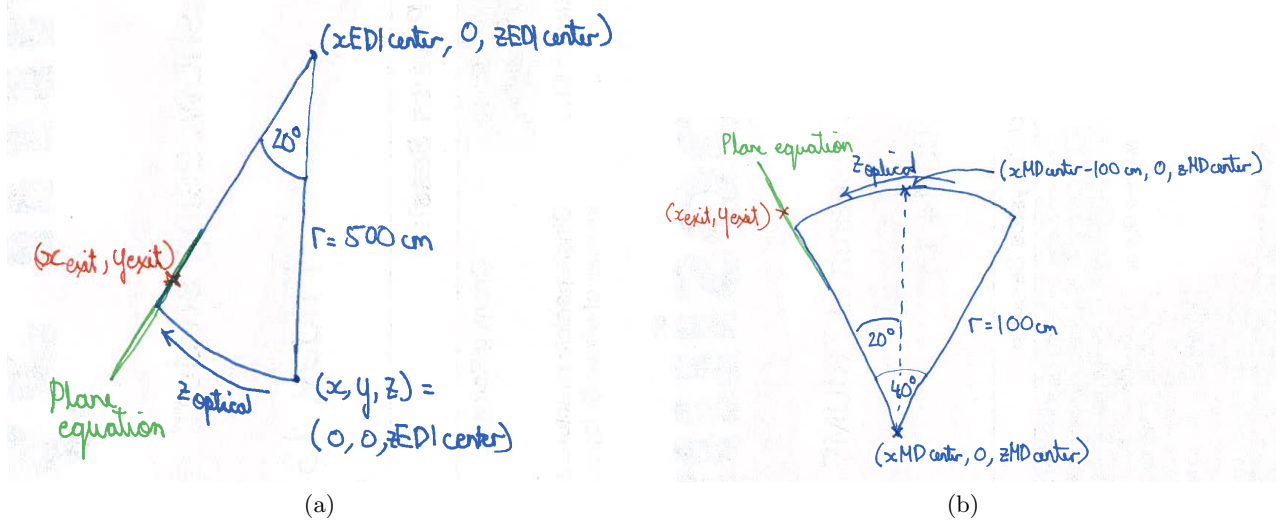 (xED1center, 0, zED1center)
20°
r = 500 cm
(x_exit, y_exit)
z optical
Plane
equation
(x, y, z) =
(0, 0, zED1center)
(a)
Plane equation
z optical
(xMDcenter-100 cm, 0, zMDcenter)
(x_exit, y_exit)
20°
r = 100 cm
40°
(xMDcenter, 0, zMDcenter)
(b)